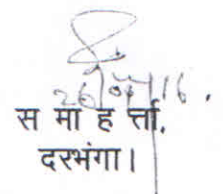 26/07/16.
स मा ह र्त्ता,
दरभंगा।